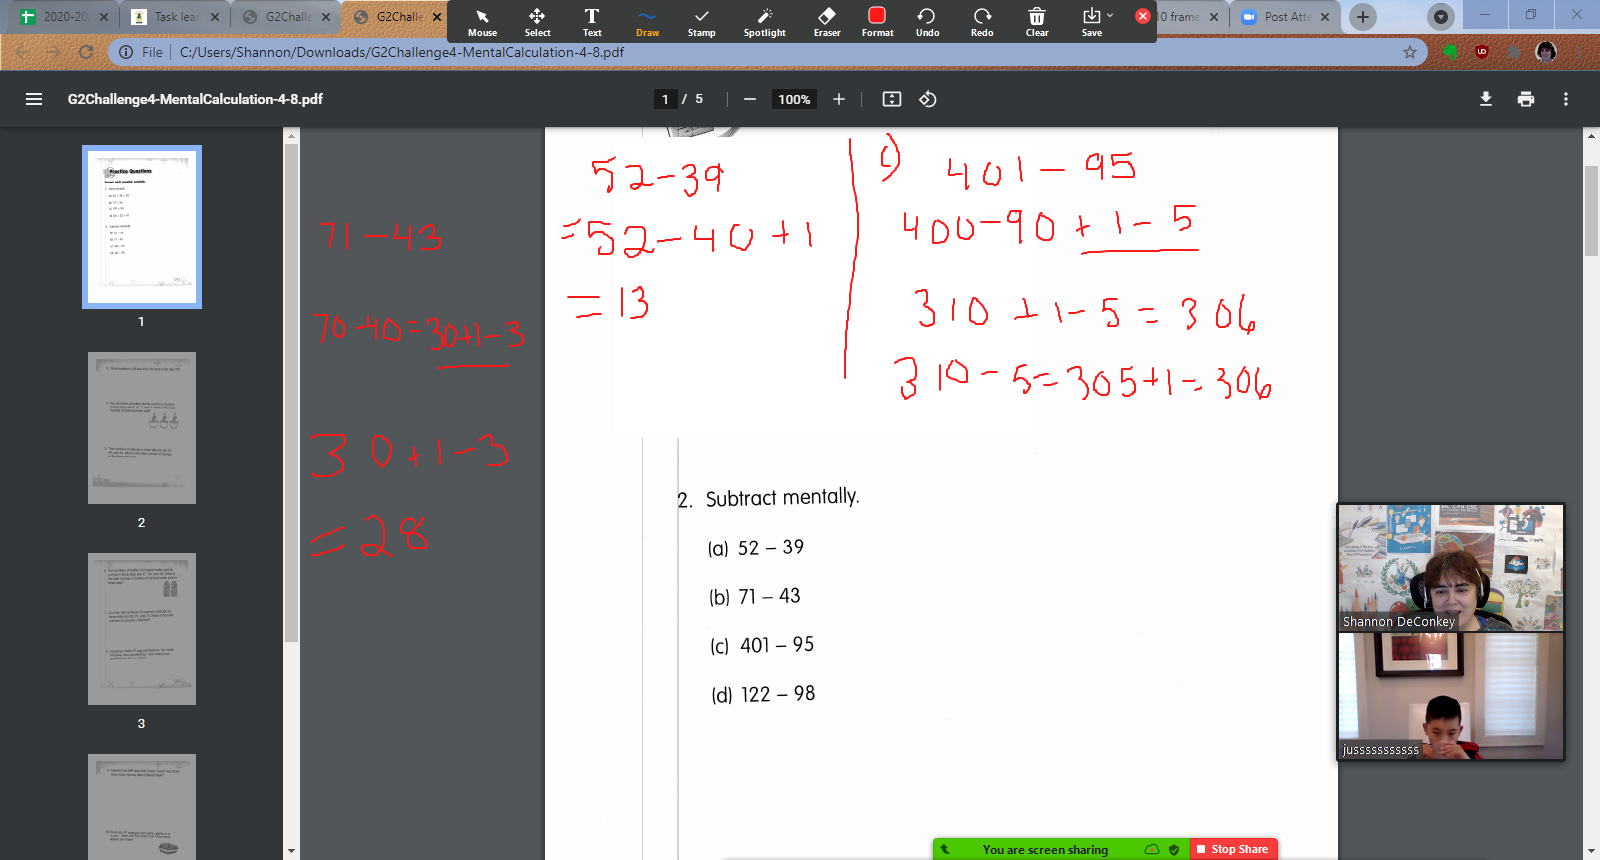 2020-20
Task lear
G2Challe
G2Challe
10 frame
Post Atte
Mouse
Select
Text
Draw
Stamp
Spotlight
Eraser
Format
Undo
Redo
Clear
Save
File
C:/Users/Shannon/Downloads/G2Challenge4-MentalCalculation-4-8.pdf
G2Challenge4-MentalCalculation-4-8.pdf
1 / 5
100%
Practice Questions
1
2
3
71 - 43
70 - 40 = 30 + 1 - 3
30 + 1 - 3
= 28
52 - 39
= 52 - 40 + 1
= 13
c) 401 - 95
400 - 90 + 1 - 5
310 + 1 - 5 = 306
310 - 5 = 305 + 1 = 306
2. Subtract mentally.
(a) 52 – 39
(b) 71 – 43
(c) 401 – 95
(d) 122 – 98
Shannon DeConkey
jusssssssssss
You are screen sharing
Stop Share